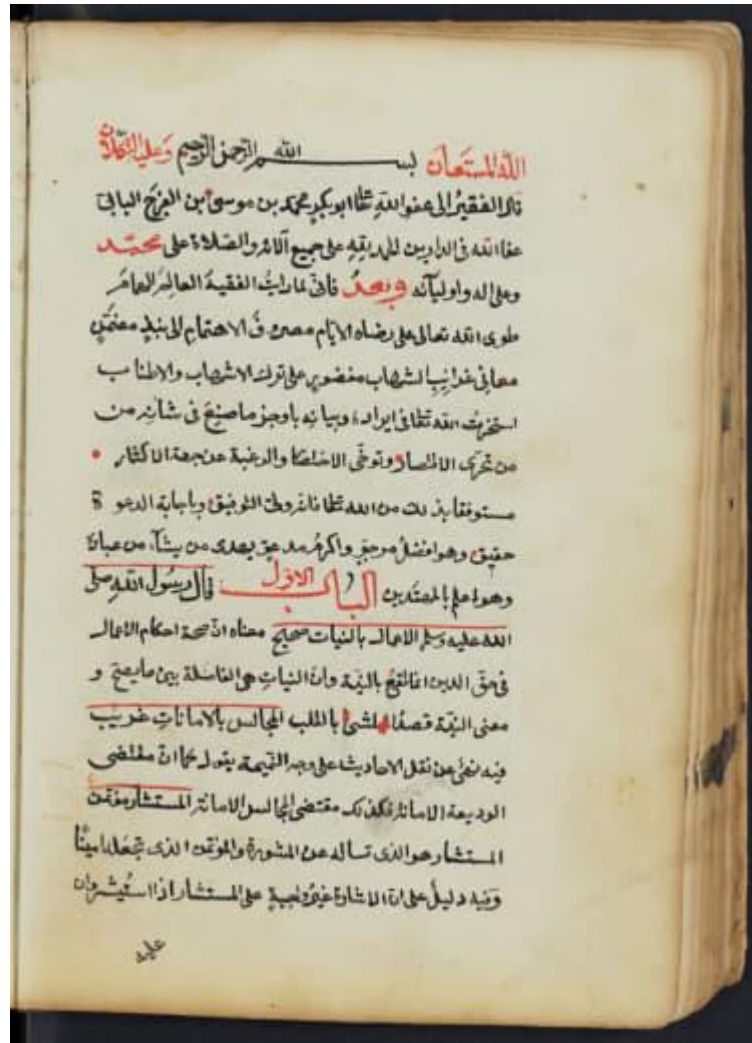 الله المستعان بسم الله الرحمن الرحيم وعليه التكلان
قال الفقير الى عفو الله تعالى ابو بكر محمد بن موسى بن الفرج البالى
عفا الله فى الدارين الحمد لله على جميع آلائه والصلاة على محمد
وعلى اله واوليآئه وبعد فانى لما رايت الفقيه العالم
طوى الله تعالى على رضاه الايام مصروف الاهتمام الى نبذ
معانى غرايب الشهاب مقصوير على ترك الاسهاب والاطناب
استخرت الله تعالى فى ايراده وبيانه باوجز ما صنع فى شانه من
من تحرى الاقتصار وتوخى الاختصار والرغبة عن جهة الاكثار
مستوفقا بذلك من الله تعالى فانه ولى التوفيق وباجابة الدعوة
حقيق وهو افضل مرجو واكرم مدعو يهدى من يشآء من عباده
وهو اعلم بالمهتدين الباب الاول قال رسول الله صلى
الله عليه وسلم الاعمال بالنيات صحيح معناه ان صحة احكام الاعمال
فى حق الدين انما تقع بالنية وان النيات هى الفاصلة بين ما يصح و
معنى النية قصدك الشئ بالقلب المجالس بالامانات غريب
فيه نهى عن نقل الاحاديث على وجه النميمة يقول كما ان مقتضى
الوديعة الامانة فكذلك مقتضى المجالس الامانة المستشار مؤتمن
المستشار هو الذى تساله عن المشورة والمؤتمن الذى تجعله امينا
وفيه دليل على ان الاشارة غير واجبة على المستشار اذا استشير وان
عليه